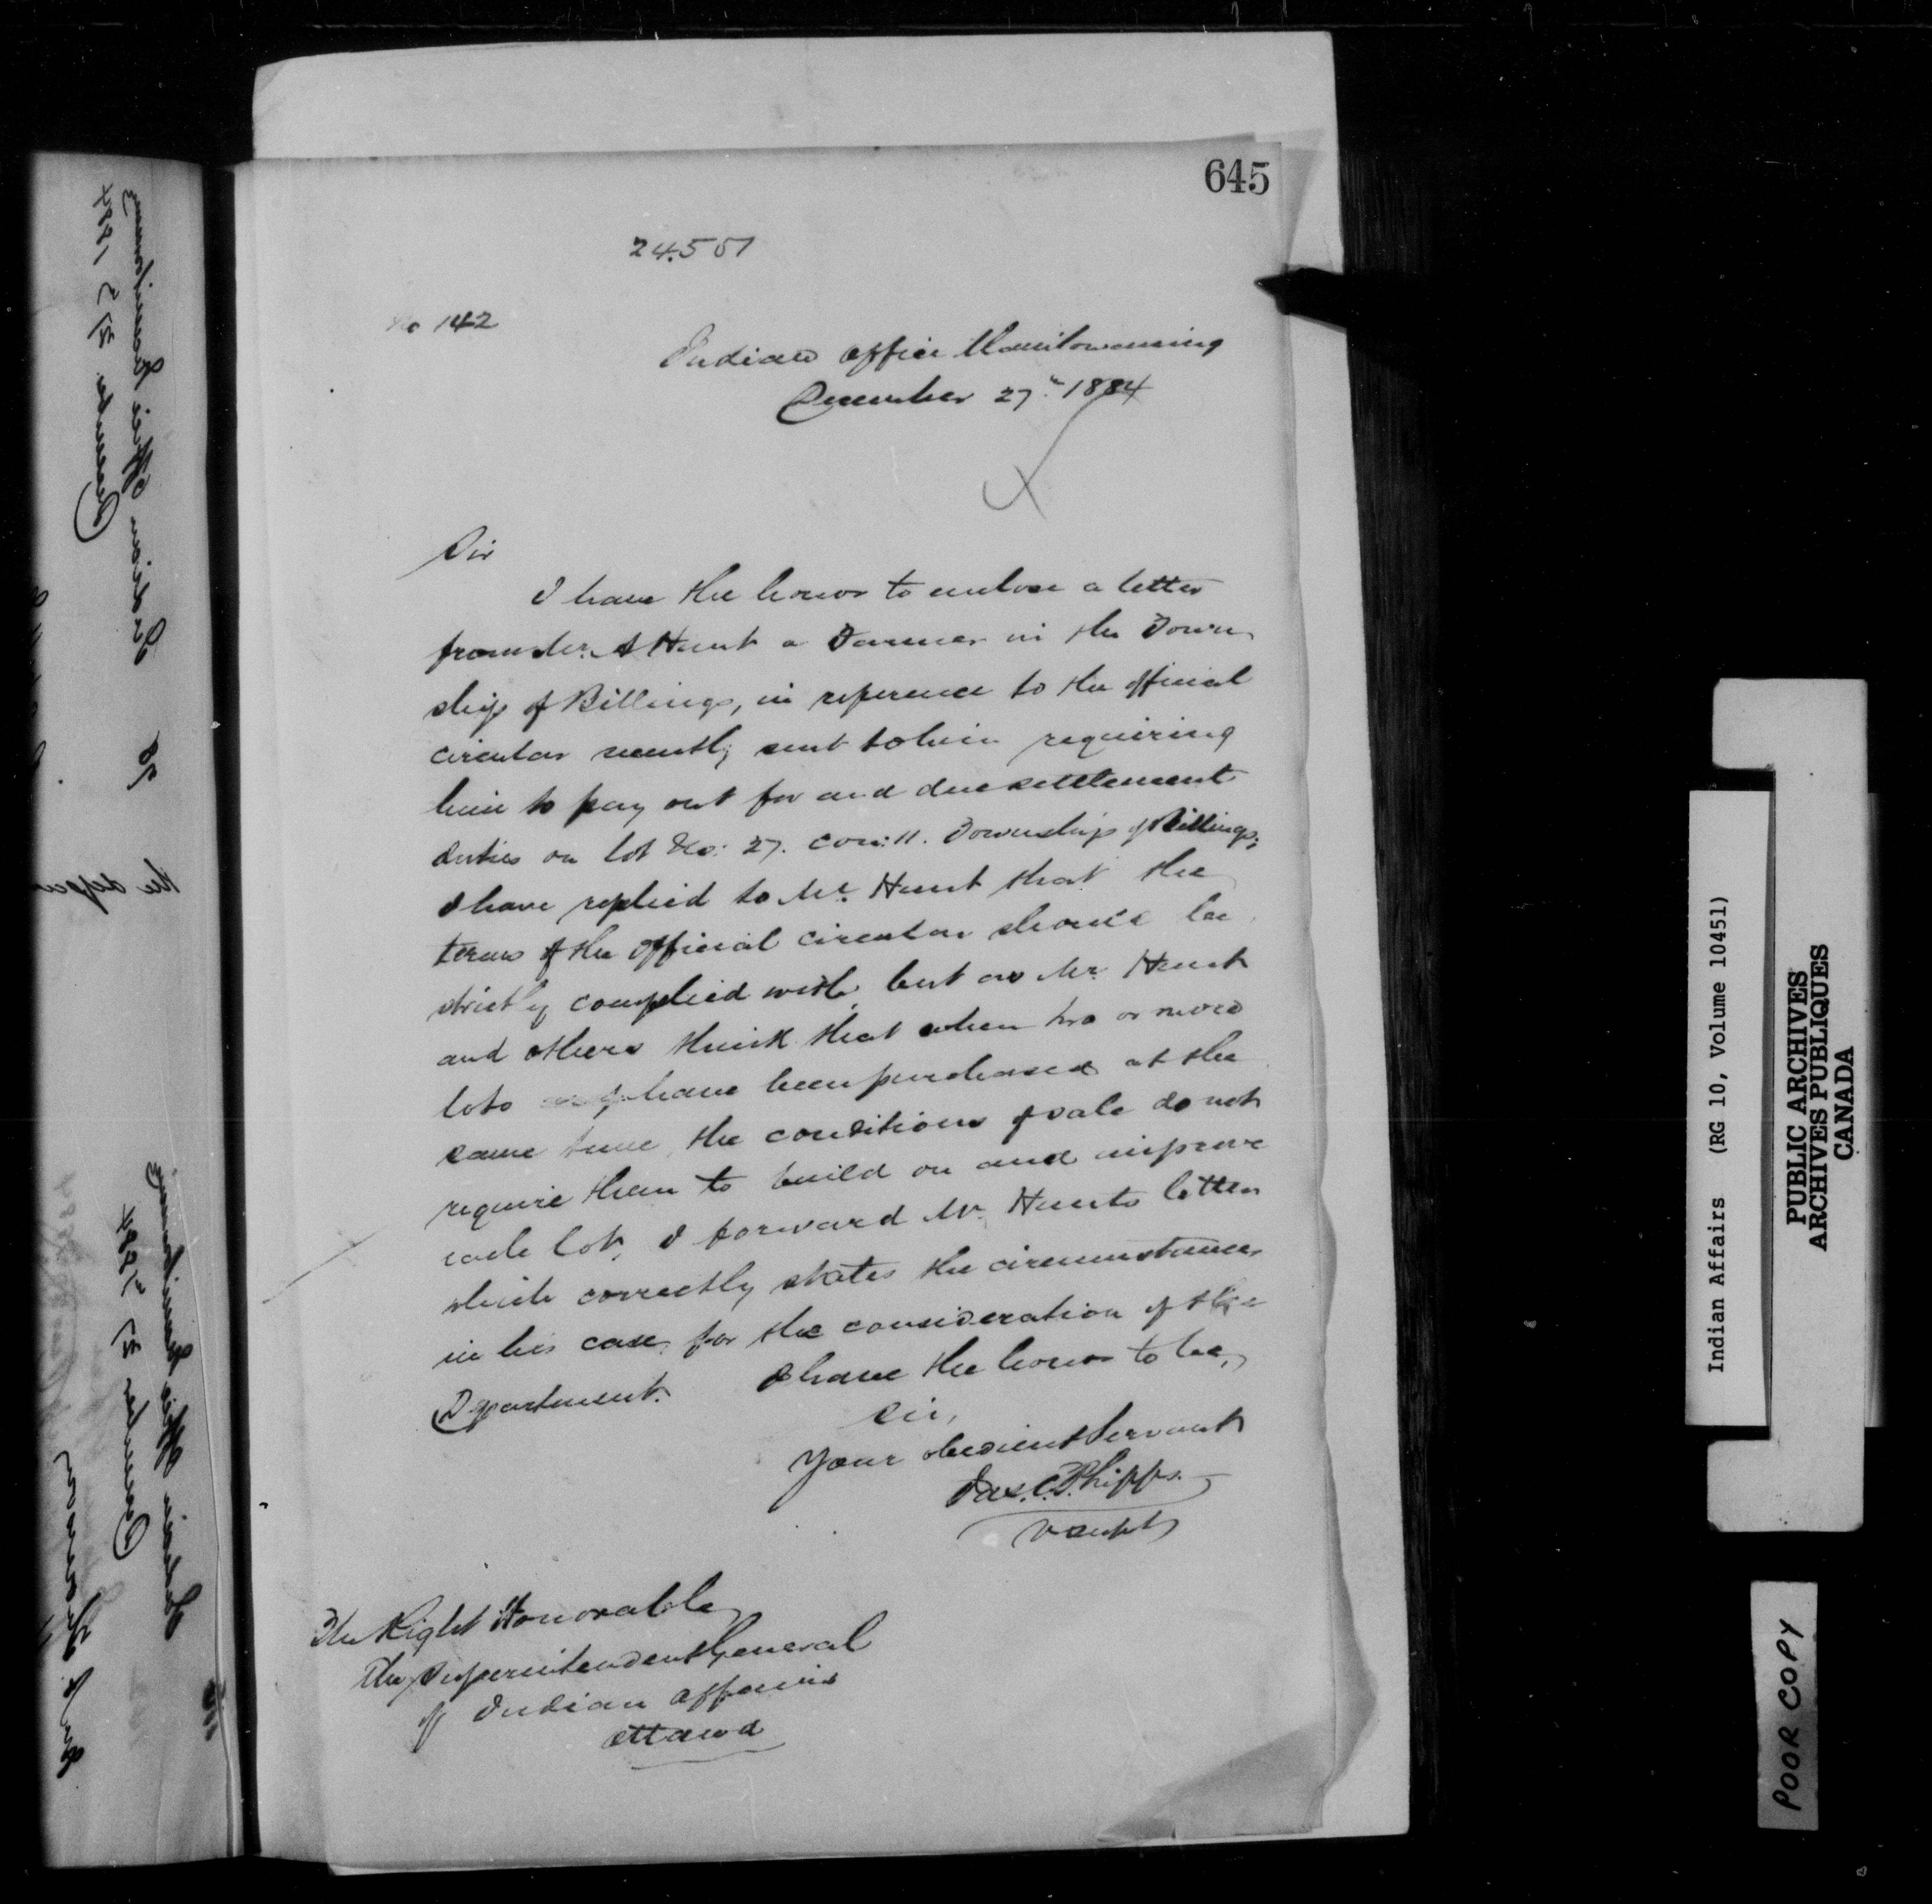 645
24.551
No 142
Indian Office Manitowaning
December 27th 1884
Sir
I have the honor to enclose a letter
from Mr. A Hunt a Farmer in the Town
ship of Billings, in reference to the official
circular recently sent to him requiring
him to pay out for and due settlement
duties on lot No: 27. con: 11. Township of Billings;
I have replied to Mr. Hunt that the
terms of the official circular should be
strictly complied with, but as Mr. Hunt
and others think that when two or more
lots have been purchased at the
same time, the conditions of sale do not
require them to build on and improve
each lot, I forward Mr. Hunts letter
which correctly states the circumstances
in his case, for the consideration of the
Department.
I have the honor to be,
Sir,
Your obedient Servant
Jas. C. Phipps.
V Supt
The Right Honorable
The Superintendent General
of Indian Affairs
Ottawa
Indian Affairs (RG 10, Volume 10451)
PUBLIC ARCHIVES
ARCHIVES PUBLIQUES
CANADA
POOR COPY